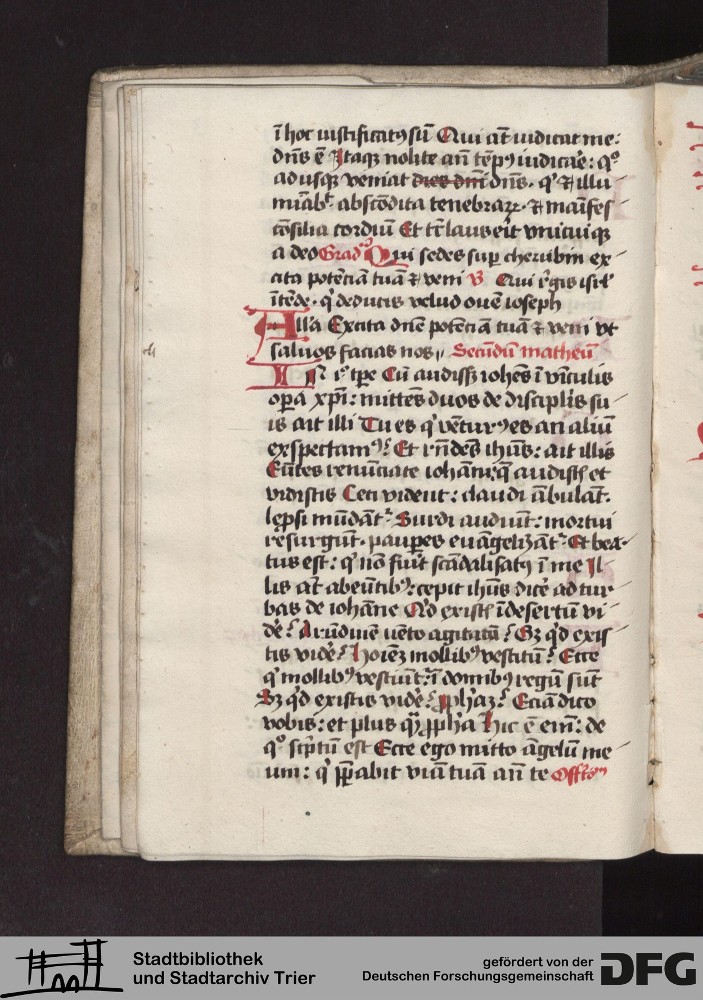 ī hoc iustificatꝰ sū Qui aūt iudicat me:
dn̄s ē Itaqꝫ nolite an̄ tēpꝰ iudicar̄e: qͦ
adusqꝫ veniat dies dn̄i dn̄s. qͥ ⁊ illu
mīabͭ abscōdita tenebraꝝ. ⁊ maīfes
cōsilia cordiū Et tūc laus eīt vnicuiqꝫ
a deo Gradͦ Qui sedes suꝑ cherubin ex
cita potēciā tuā ⁊ veni V Qui r̄gis isrl̄
ītēde. qͥ deducis velud ouē ioseph
All̄a Excita dn̄e potēciā tuā ⁊ veni vt
saluos facias nos Secundū matheū
In iͦ tp̄e Cū audissꝫ ioh̄es ī vinculis
oꝑa xp̄i: mittēs duos de disciplīs su
is ait illi Tu es qͥ vēturꝰ es an aliū
exspectamꝰ? Et rn̄dēs ih̄us: ait illis
Eūtes renūciate iohāni: q̄ audistꝭ et
vidistis Ceci vidēt: claudi ābulāt.
lep̄si mūdāt͛ Surdi audiūt: mortui
resurgūt. pauꝑes euāgelizāt͛ Et bea
tus est: qͥ nō fuīt scādalisatꝰ ī me Il
lis aūt abeūtibꝰ: cepit ih̄us dicē ad tur
bas de iohāne Qͥd existꝭ ī desertū vi
dē? Arūdinē uēto agitatū? Sꝫ qͥd exis
tis vidē? hoīeꝫ mollibꝰ vestitū? Ecce
qͥ mollibꝰ vestiūt͛: ī domibꝰ regū sūt
Sꝫ qͥd existis vidē? ꝓph̄aꝫ? Eciā dico
vobis: et plus qͣꝫ ꝓph̄a Hic ē em̄: de
qͦ scͥptū est Ecce ego mitto āgelū me
um: qͥ p̄parabit viā tuā an̄ te Offꝰm
Stadtbibliothek
und Stadtarchiv Trier
gefördert von der
Deutschen Forschungsgemeinschaft
DFG